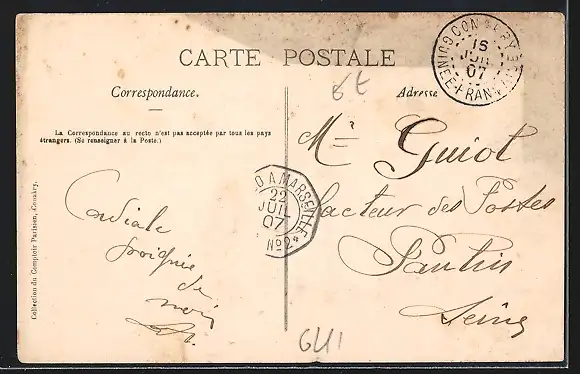 CARTE POSTALE
CONAKRY
16
JUIL
07
GUINÉE FRANÇAISE
6t
Correspondance.
Adresse
La Correspondance au recto n'est pas acceptée par tous les pays
étrangers. (Se renseigner à la Poste.)
Mr Guiot
facteur des Postes
Pantin
Seine
D A MARSEILLE
22
JUIL
07
Nº2
Cordiale
poignée
de
main
Collection du Comptoir Parisien, Conakry.
6411